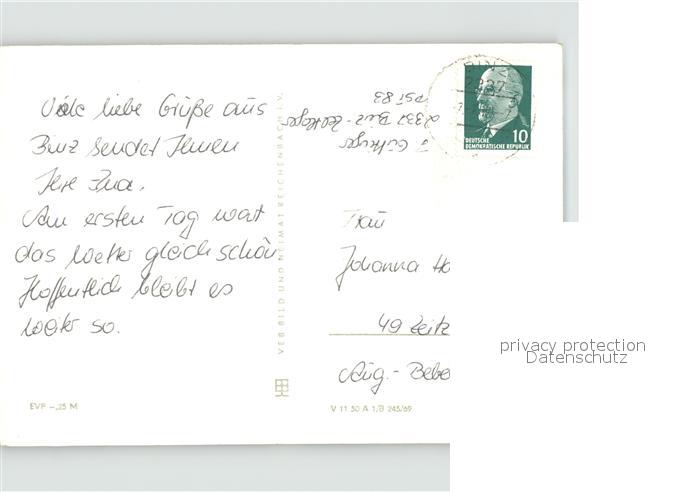 Viele liebe Grüße aus
Binz sendet Ihnen
Ihre
Am ersten Tag war
das Wetter gleich schön
Hoffentlich bleibt es
weiter so.
EVP -,25 M
VEB BILD UND HEIMAT REICHENBACH I. V.
2337 Binz
PSF 83
BINZ
2337
10
DEUTSCHE
DEMOKRATISCHE REPUBLIK
Frau
Johanna
49 Zeitz
Aug.-Bebe
V 11 50 A 1/B 245/69
privacy protection
Datenschutz